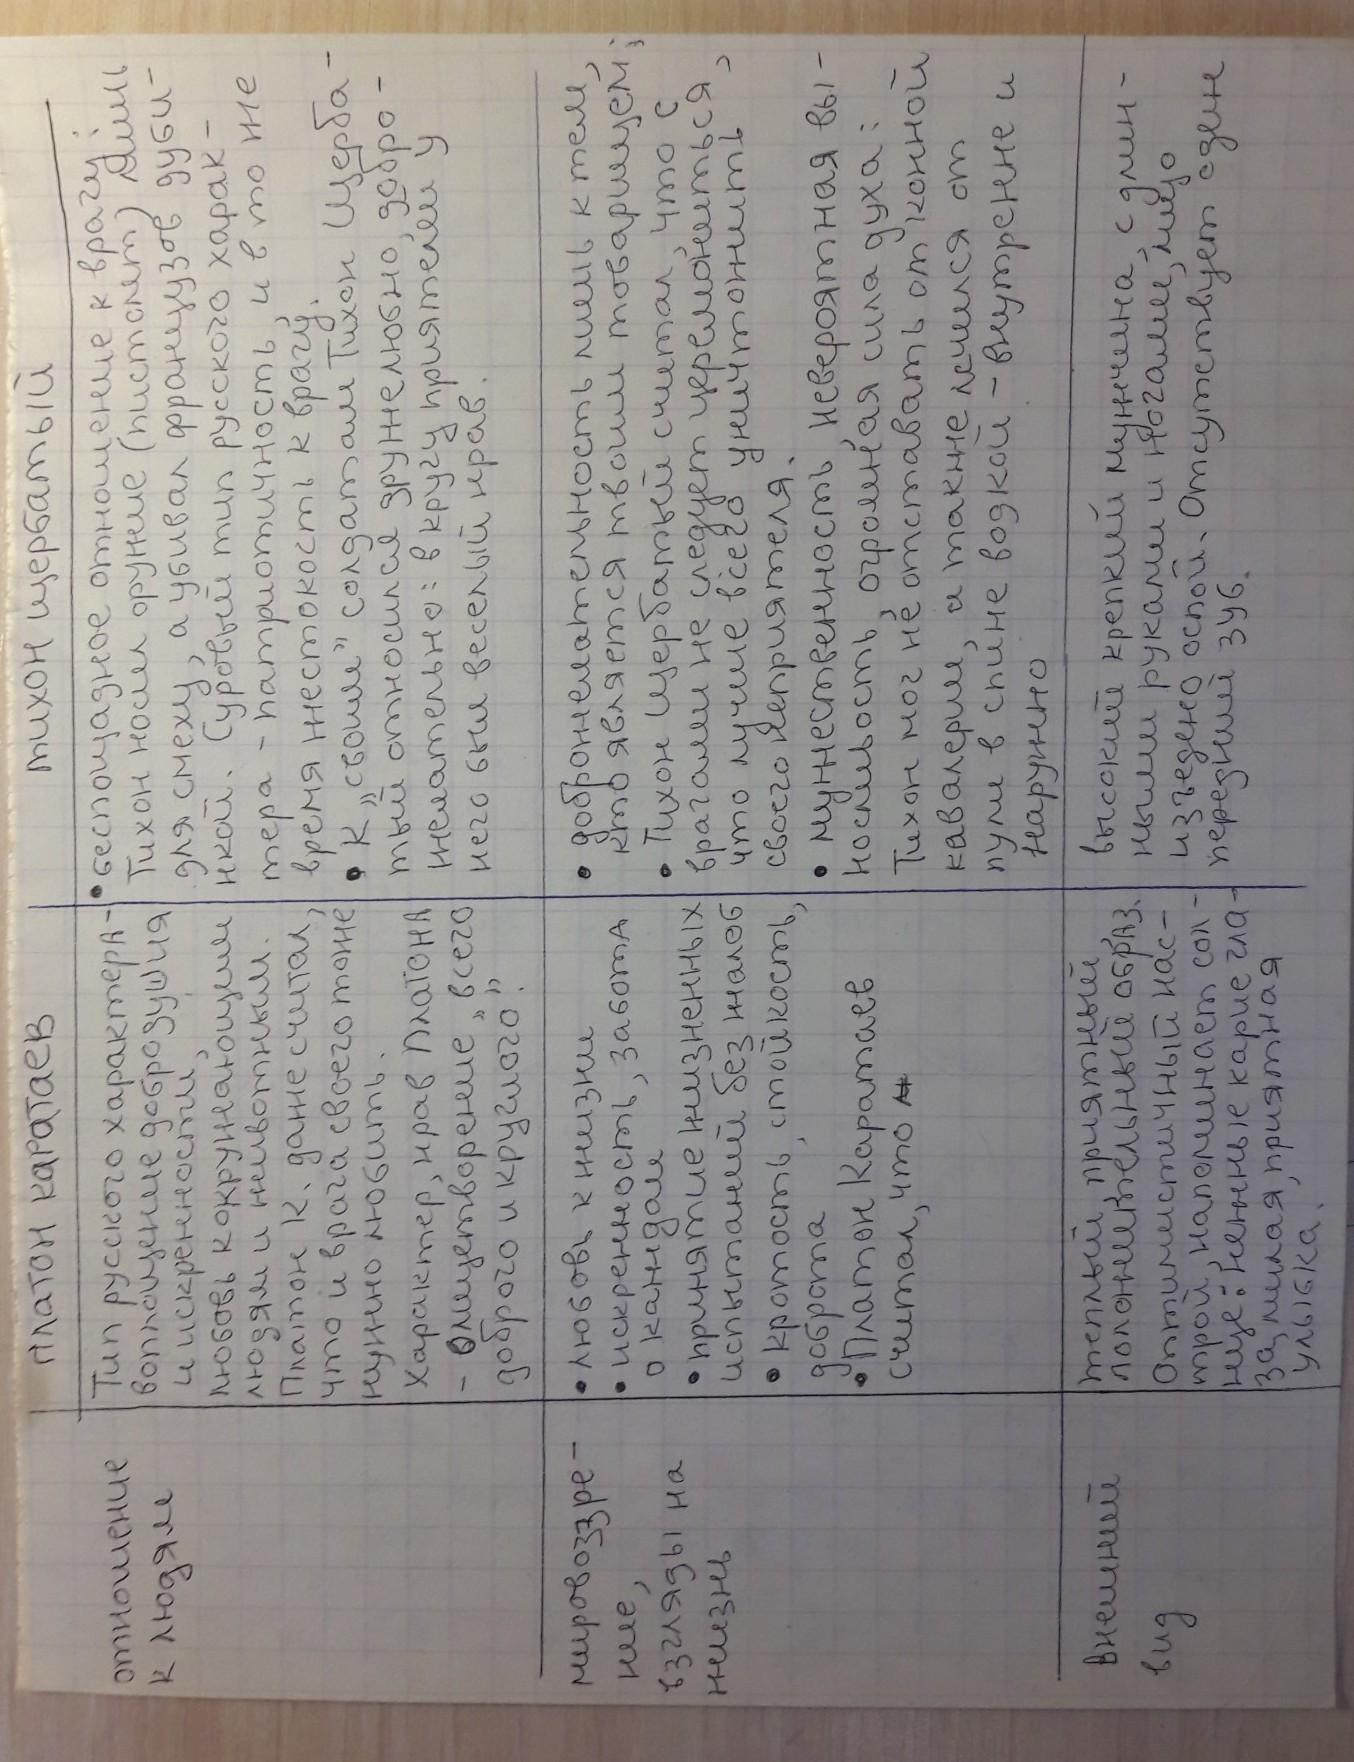 Платон Каратаев
Тихон Щербатый
отношение
к людям
Тип русского характера-
воплощение добродушия
и искренности,
любовь к окружающим
людям и животным.
Платон К. даже считал,
что и врага своего тоже
нужно любить.
Характер, нрав Платона
- олицетворение „всего
доброго и круглого".
• беспощадное отношение к врагу:
Тихон носил оружие (пистолет) лишь
для смеху, а убивал французов дуби-
нкой. Суровый тип русского харак-
тера - патриотичность и в то же
время жестокость к врагу.
• К „своим" солдатам Тихон Щерба-
тый относился дружелюбно, добро-
желательно: в кругу приятелей у
него был весёлый нрав.
мировоззре-
ние,
взгляды на
жизнь
• любовь к жизни
• искренность, забота
о каждом
• принятие жизненных
испытаний без жалоб
• кротость, стойкость,
доброта
• Платон Каратаев
считал, что
• доброжелательность лишь к тем,
кто является твоим товарищем;
• Тихон Щербатый считал, что с
врагами не следует церемониться,
что лучше всего уничтожить
своего неприятеля.
• мужественность, невероятная вы-
носливость, огромная сила духа:
Тихон мог не отставать от конной
кавалерии, а также лечился от
пули в спине водкой - внутренне и
наружно
внешний
вид
тёплый, приятный,
положительный образ.
Оптимистичный нас-
трой, напоминает сол-
нце: нежные карие гла-
за, милая, приятная
улыбка.
высокий крепкий мужчина с длин-
ными руками и ногами, лицо
изъедено оспой. Отсутствует один
передний зуб.